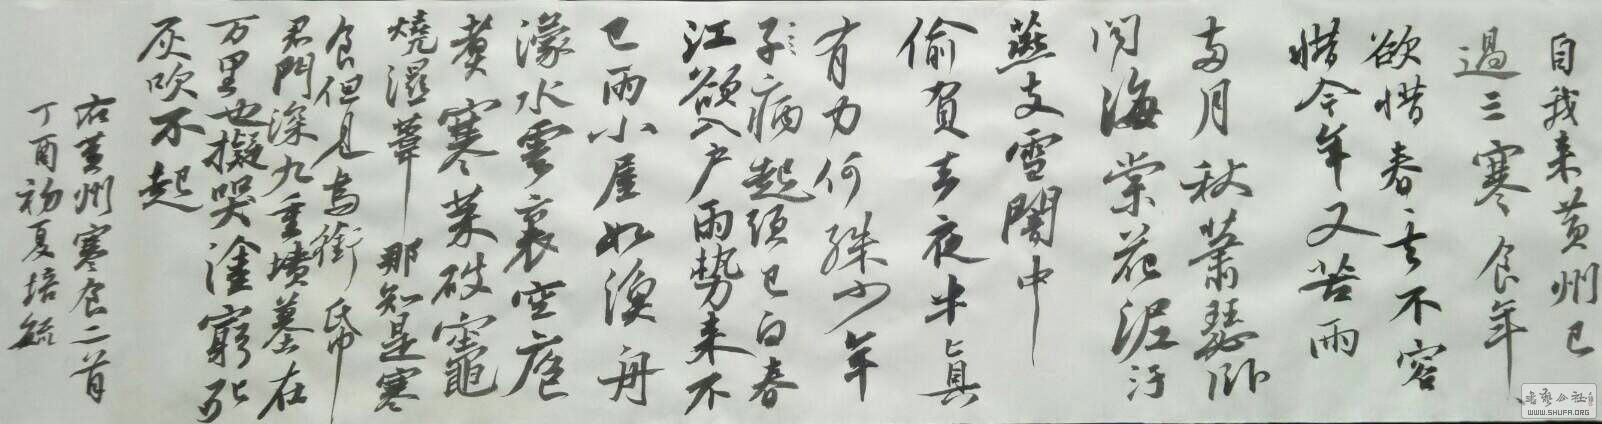 自我来黄州已
過三寒食年々
欲惜春々去不容
惜今年又苦雨
两月秋蕭瑟卧
闻海棠花泥汙
燕支雪闇中
偷負去夜半真
有力何殊少年
子病起須已白春
江欲入户雨勢来不
已雨小屋如渔舟
濛水雲裏空庖
煮寒菜破竈
燒濕葦那知是寒
食但見烏銜帋
君門深九重墳墓在
万里也擬哭塗窮死
灰吹不起
右黄州寒食二首
丁酉初夏培毓
书艺公社
WWW.SHUFA.ORG